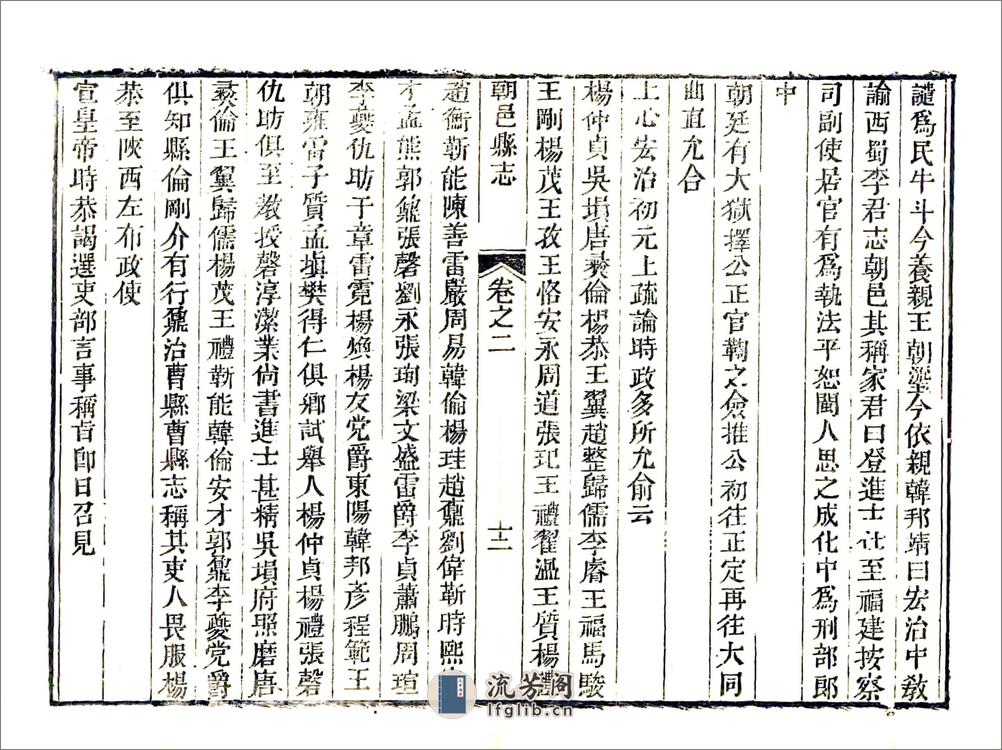 譴爲民牛斗今養親王朝㙻今依親韓邦靖曰宏治中敎
諭西蜀李君志朝邑其稱家君曰登進士仕至福建按察
司副使居官有爲執法平恕閩人思之成化中爲刑部郎
中
朝廷有大獄擇公正官鞫之僉推公初往正定再往大同
曲直允合
上心宏治初元上疏論時政多所允俞云
楊仲貞吳塤唐彝倫楊恭王翼趙整歸儒李睿王福馬駿
王剛楊茂王孜王恪安永周道張玘王禮翟溫王質楊
朝邑縣志
卷之二
十二
趙衡靳能陳善雷嚴周易韓倫楊珪趙鼐劉偉靳時熙
才孟熊郭鼐張磬劉永張珣梁文盛雷爵李貞蕭鵬周瑄
李夔仇助于章雷霓楊煥楊友党爵東陽韓邦彥程範王
朝雍雷子質孟塤樊得仁俱鄉試舉人楊仲貞楊禮張磬
仇助俱至敎授磬淳潔業尙書進士甚精吳塤府照磨唐
彝倫王翼歸儒楊茂王禮靳能韓倫安才郭鼐李夔党爵
俱知縣倫剛介有行鼐治曹縣曹縣志稱其吏人畏服楊
恭至陝西左布政使
宣皇帝時恭謁選吏部言事稱旨卽日召見
流芳阁
lfglib.cn